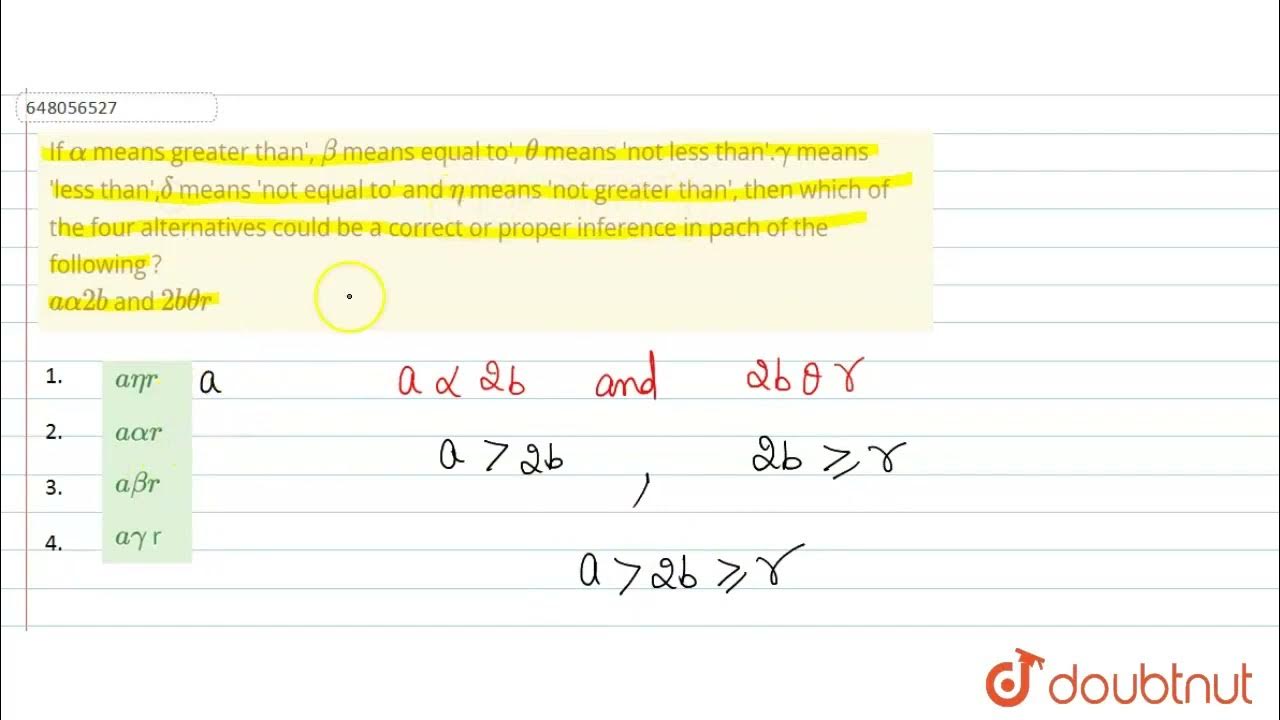 648056527
If α means greater than', β means equal to', θ means 'not less than'.γ means
'less than',δ means 'not equal to' and η means 'not greater than', then which of
the four alternatives could be a correct or proper inference in pach of the
following ?
aα2b and 2bθr
1. aηr a
a α 2b and 2b θ r
2. aαr
a > 2b , 2b ⩾ r
3. aβr
4. aγ r
a > 2b ⩾ r
doubtnut